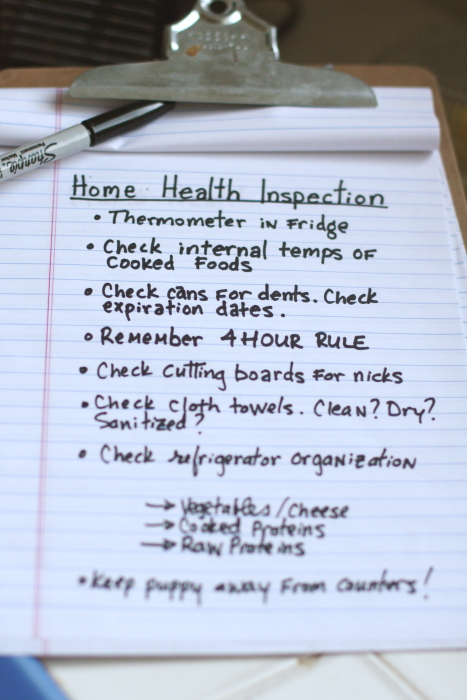 Sharpie
Home Health Inspection
• Thermometer in Fridge
• Check internal temps of
Cooked Foods
• Check cans for dents. Check
expiration dates.
• Remember 4 HOUR RULE
• Check cutting boards for nicks
• Check cloth towels. Clean? Dry?
Sanitized?
• Check refrigerator organization
→ Vegetables/Cheese
→ Cooked Proteins
→ Raw Proteins
• Keep puppy away from counters!